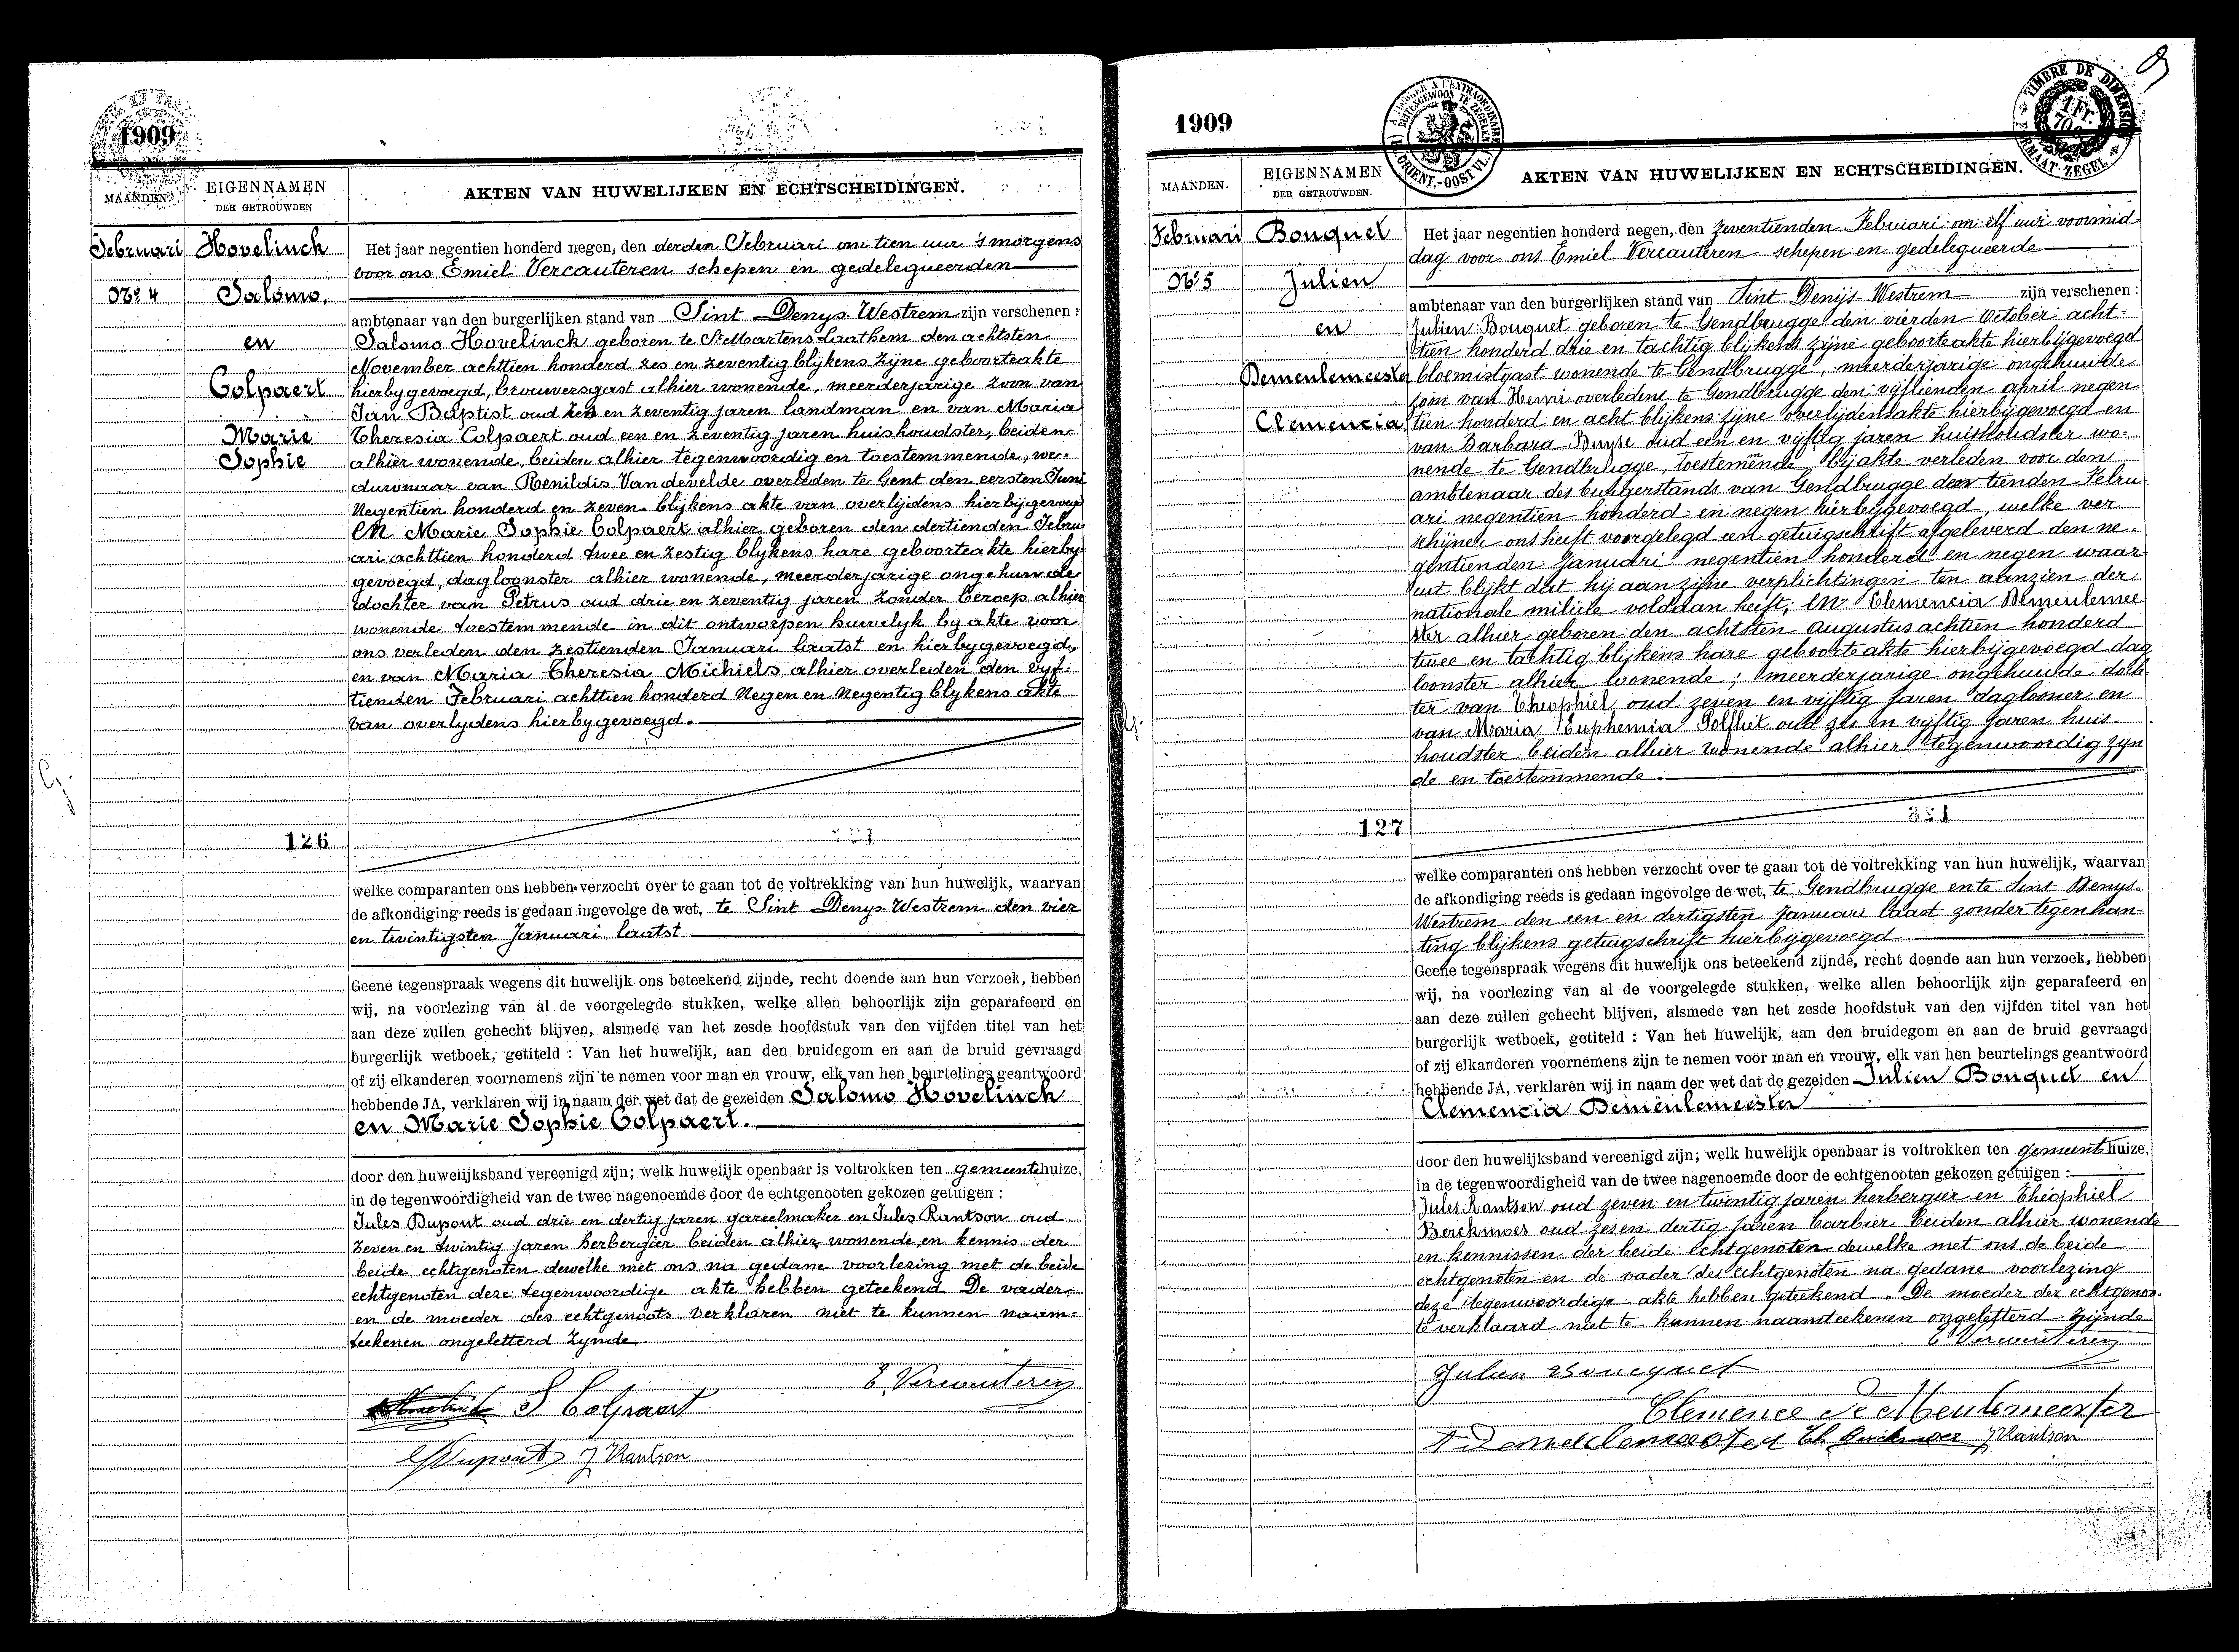 1909
MAANDEN.
EIGENNAMEN
DER GETROUWDEN
AKTEN VAN HUWELIJKEN EN ECHTSCHEIDINGEN.
Februari
No. 4
Hovelinck
Salomo,
en
Colpaert
Marie
Sophie
126
Het jaar negentien honderd negen, den derden Februari om tien uur 's morgens
voor ons Emiel Vercauteren schepen en gedelegueerden
ambtenaar van den burgerlijken stand van Sint Denys Westrem zijn verschenen :
Salomo Hovelinck geboren te St Martens Laathem den achtsten
November achttien honderd zes en zeventig blijkens zijne geboorteakte
hierbygevoegd, brouwersgast alhier wonende, meerderjarige zoon van
Jan Baptist oud zes en zeventig jaren landman en van Maria
Theresia Colpaert oud een en zeventig jaren huishoudster, beiden
alhier wonende, beiden alhier tegenwoordig en toestemmende, we-
duwnaar van Renildis Vandevelde overleden te Gent den eersten Juni
Negentien honderd en zeven blijkens akte van overlijdens hierbijgevoegd
En Marie Sophie Colpaert alhier geboren den dertienden Febru
ari achttien honderd twee en zestig blykens hare geboorteakte hierby
gevoegd, dagloonster alhier wonende, meerderjarige ongehuwde
dochter van Petrus oud drie en zeventig jaren zonder beroep alhier
wonende toestemmende in dit ontworpen huwelyk by akte voor
ons verleden den zestienden Januari laatst en hierbygevoegd,
en van Maria Theresia Michiels alhier overleden den vyf-
tienden Februari achttien honderd Negen en Negentig blykens akte
van overlydens hierbygevoegd.
welke comparanten ons hebben verzocht over te gaan tot de voltrekking van hun huwelijk, waarvan
de afkondiging reeds is gedaan ingevolge de wet, te Sint Denys Westrem den vier
en twintigsten Januari laatst
Geene tegenspraak wegens dit huwelijk ons beteekend zijnde, recht doende aan hun verzoek, hebben
wij, na voorlezing van al de voorgelegde stukken, welke allen behoorlijk zijn geparafeerd en
aan deze zullen gehecht blijven, alsmede van het zesde hoofdstuk van den vijfden titel van het
burgerlijk wetboek, getiteld : Van het huwelijk, aan den bruidegom en aan de bruid gevraagd
of zij elkanderen voornemens zijn te nemen voor man en vrouw, elk van hen beurtelings geantwoord
hebbende JA, verklaren wij in naam der wet dat de gezeiden Salomo Hovelinck
en Marie Sophie Colpaert.
door den huwelijksband vereenigd zijn; welk huwelijk openbaar is voltrokken ten gemeentehuize,
in de tegenwoordigheid van de twee nagenoemde door de echtgenooten gekozen getuigen :
Jules Dupont oud drie en dertig jaren gareelmaker en Jules Rantson oud
zeven en twintig jaren herbergier beiden alhier wonende, en kennis der
beide echtgenoten dewelke met ons na gedane voorlezing met de beide
echtgenoten deze tegenwoordige akte hebben geteekend De vader
en de moeder des echtgenoots verklaren niet te kunnen naam-
teekenen ongeletterd zynde.
E. Vercauteren
S Colpaert
Dupont J Rantson
1909
MAANDEN.
EIGENNAMEN
DER GETROUWDEN.
AKTEN VAN HUWELIJKEN EN ECHTSCHEIDINGEN.
TIMBRE DE DIMENSION
1 Fr.
Februari
No. 5
Bouquet
Julien
en
Demeulemeester
Clemencia
127
Het jaar negentien honderd negen, den zeventienden Februari om elf uur voormid
dag voor ons Emiel Vercauteren schepen en gedelegueerde
ambtenaar van den burgerlijken stand van Sint Denijs Westrem zijn verschenen :
Julien Bouquet geboren te Gendbrugge den vierden October acht-
tien honderd drie en tachtig blijkens zijne geboorteakte hierbijgevoegd
bloemistgast wonende te Gendbrugge, meerderjarige ongehuwde
zoon van Henri overledene te Gendbrugge den vijftienden april negen
tien honderd en acht blijkens zijne overlijdensakte hierbijgevoegd en
van Barbara Buyse oud een en vijftig jaren huishoudster wo-
nende te Gendbrugge, toestemende bij akte verleden voor den
ambtenaar des burgerstands van Gendbrugge den tienden Febru
ari negentien honderd en negen hierbijgevoegd, welke ver
schijner ons heeft voorgelegd een getuigschrift afgeleverd den ne-
gentienden Januari negentien honderd en negen waar
uit blijkt dat hij aan zijne verplichtingen ten aanzien der
nationale militie voldaan heeft; En Clemencia Demeulemee
ster alhier geboren den achtsten Augustus achtien honderd
twee en tachtig blijkens hare geboorteakte hierbijgevoegd dag
loonster alhier wonende; meerderjarige ongehuwde doch
ter van Theophiel oud zeven en vijftig jaren daglooner en
van Maria Euphemia Polfliet oud zes en vijftig jaren huis-
houdster beiden alhier wonende alhier tegenwoordig zyn
de en toestemmende.
welke comparanten ons hebben verzocht over te gaan tot de voltrekking van hun huwelijk, waarvan
de afkondiging reeds is gedaan ingevolge de wet, te Gendbrugge en te Sint Denys-
Westrem den een en dertigsten Januari laast zonder tegenkan-
ting blijkens getuigschrift hierbijgevoegd
Geene tegenspraak wegens dit huwelijk ons beteekend zijnde, recht doende aan hun verzoek, hebben
wij, na voorlezing van al de voorgelegde stukken, welke allen behoorlijk zijn geparafeerd en
aan deze zullen gehecht blijven, alsmede van het zesde hoofdstuk van den vijfden titel van het
burgerlijk wetboek, getiteld : Van het huwelijk, aan den bruidegom en aan de bruid gevraagd
of zij elkanderen voornemens zijn te nemen voor man en vrouw, elk van hen beurtelings geantwoord
hebbende JA, verklaren wij in naam der wet dat de gezeiden Julien Bouquet en
Clemencia Demeulemeester
door den huwelijksband vereenigd zijn; welk huwelijk openbaar is voltrokken ten gemeentehuize,
in de tegenwoordigheid van de twee nagenoemde door de echtgenooten gekozen getuigen :
Jules Rantson oud zeven en twintig jaren herbergier en Théophiel
Berickmoes oud zesen dertig jaren barbier beiden alhier wonende
en kennissen der beide echtgenoten dewelke met ons de beide
echtgenoten en de vader der echtgenoten na gedane voorlezing
deze tegenwoordige akte hebben geteekend. De moeder der echtgenoo-
te verklaard niet te kunnen naamteekenen ongeletterd zijnde
E Vercauteren
Julien Boucquet
Clemence De Meulemeester
J Rantson